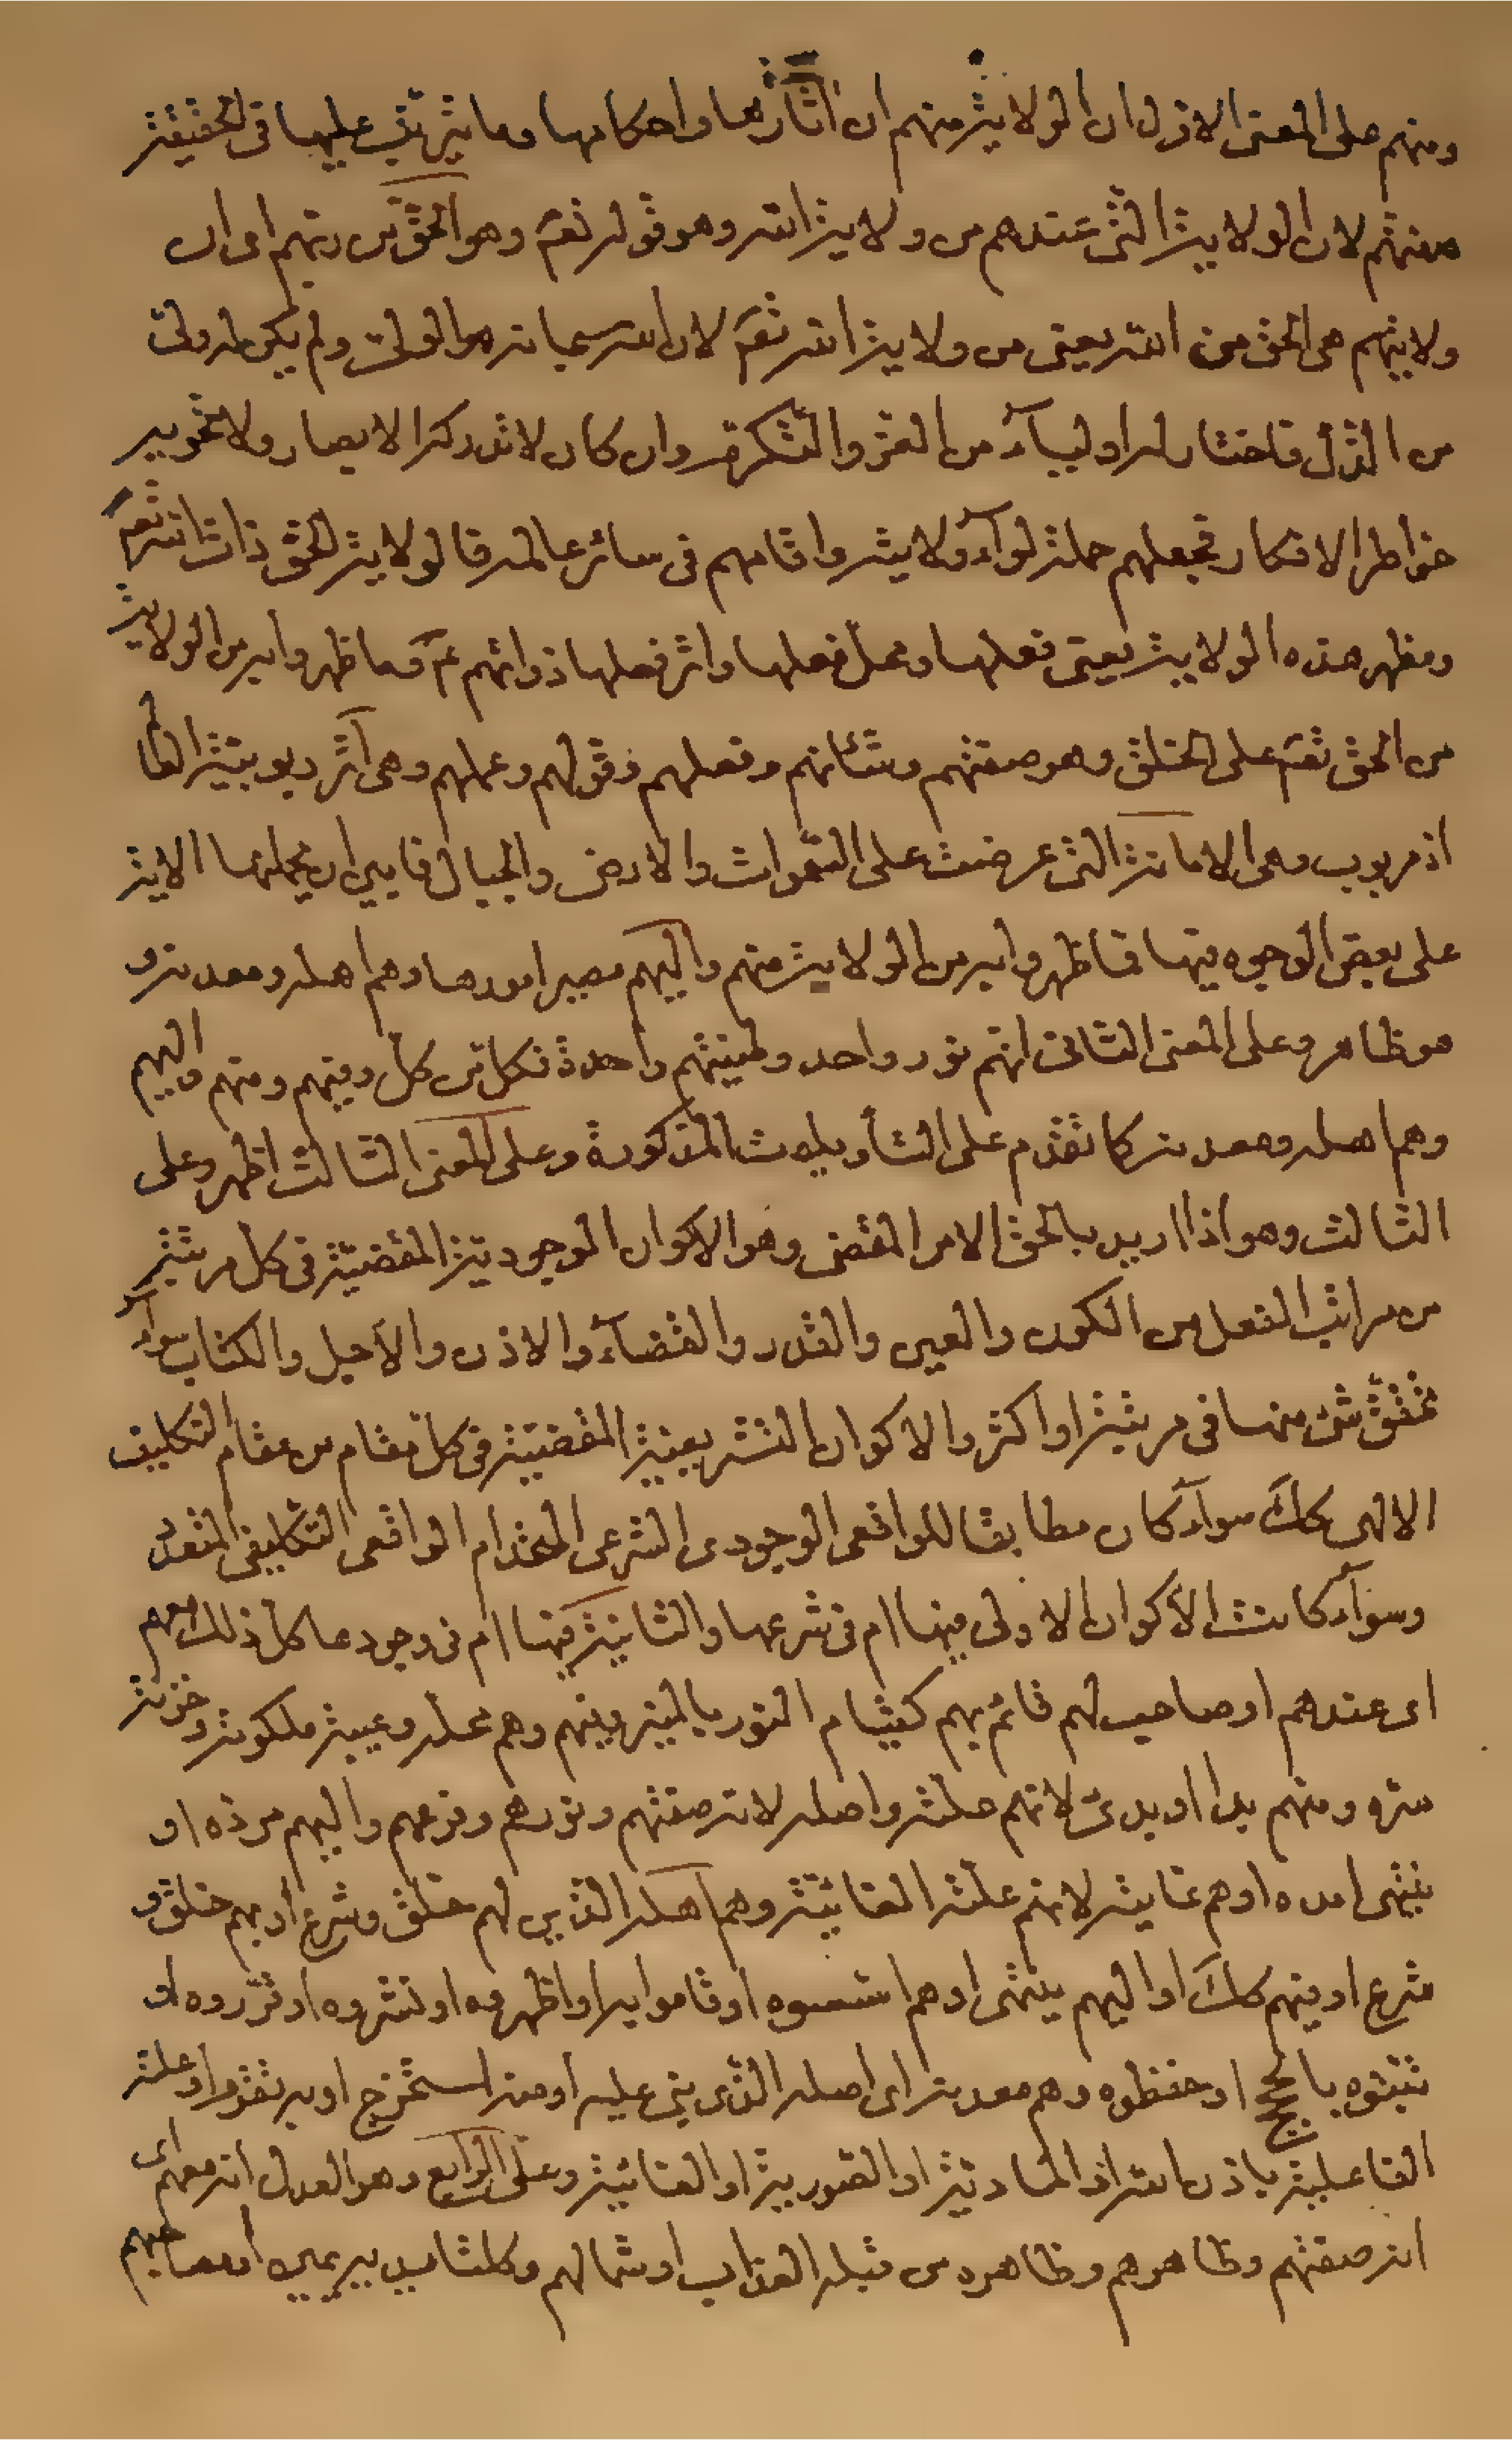 ومنهم على المعنى الاول ان الولاية منهم ان اثارها واحكامها وما يترتب عليها فى الحقيقة
منهم لان الولاية التى عندهم من ولاية الله وهو قوله تعم وهو الحق من ربهم اى ان
ولايتهم هى الحق من الله يعنى من ولاية الله تعم لان الله سبحانه هو الولى ولم يكن له ولى
من الذل فاختار له اولياء من العز والتكرم وان كان لا تدركه الابصار ولا تحويه
خواطر الافكار فجعلهم حملة لواء ولايته واقامهم فى سائر عالمه فالولاية الحق ذات الله تعم
ومظهر هذه الولاية يعنى فعلها ومحل فعلها واثر فعلها ذواتهم عم فما ظهروا به من الولاية
من الحق تعم على الخلق وهو صفتهم وشأنهم وفعلهم وقولهم وعملهم وهى اثر ربوبيته الظا
اذ مربوب وهى الامانة التى عرضت على السموات والارض والجبال فابين ان يحملنها الاية
على بعض الوجوه فيها فاظهروا به من الولاية منهم واليهم مصير امورها وهم اهله ومعدنه و
هو ظاهر وعلى المعنى الثانى انهم نور واحد وطينتهم واحدة فكل من كل وفيهم ومنهم واليهم
وهم اهله ومعدنه كما تقدم على التأويلات المذكورة وعلى المعنى الثالث اظهر وعلى
الثالث وهو اذا اريد بالحق الامر المقضى وهو الاكوان الوجودية المقضية فى كل مرتبة
من مراتب الفعل من الكون والعين والقدر والقضاء والاذن والاجل والكتاب سواء
تحقق شئ منها فى مرتبة او اكثر والاكوان التشريعية المقضية فى كل مقام من مقام التكليف
الالهى كك سواء كان مطابقا للواقعى الوجودى الشرعى المتحد ام الواقعى التكليفى المتعدد
وسواء كانت الاكوان الاولى فيها ام فى شرعها والثانية فيها ام فى وجودها كل ذلك معهم
اى عندهم او صاحب لهم قائم بهم كقيام النور بالمنير وفيهم وهم محله وعيبة ملكوته وخزنة
سره ومنهم بدا او بدئ لانهم علته واصله لانه صفتهم ونورهم وفرعهم واليهم مرده او
ينتهى امده او هم غايته لانهم علته الغائية وهم اهله الذين لهم خلق وشرع او بهم خلق و
شرع او فيهم كك او اليهم ينتهى او هم اسسوه او قاموا به او اظهروه او نشروه او قرروه او
ثبتوه بالحجج او حفظوه وهم معدنه اى اصله الذى بنى عليه او منه استخرج او به تقوم او علته
الفاعلية باذن الله او المادية او الصورية او الغائية وعلى الرابع وهو العدل انه معهم اى
انه صفتهم وظاهرهم وظاهره من قبله العذاب او شمالهم وكلتا يديه يمين او مصاحبهم